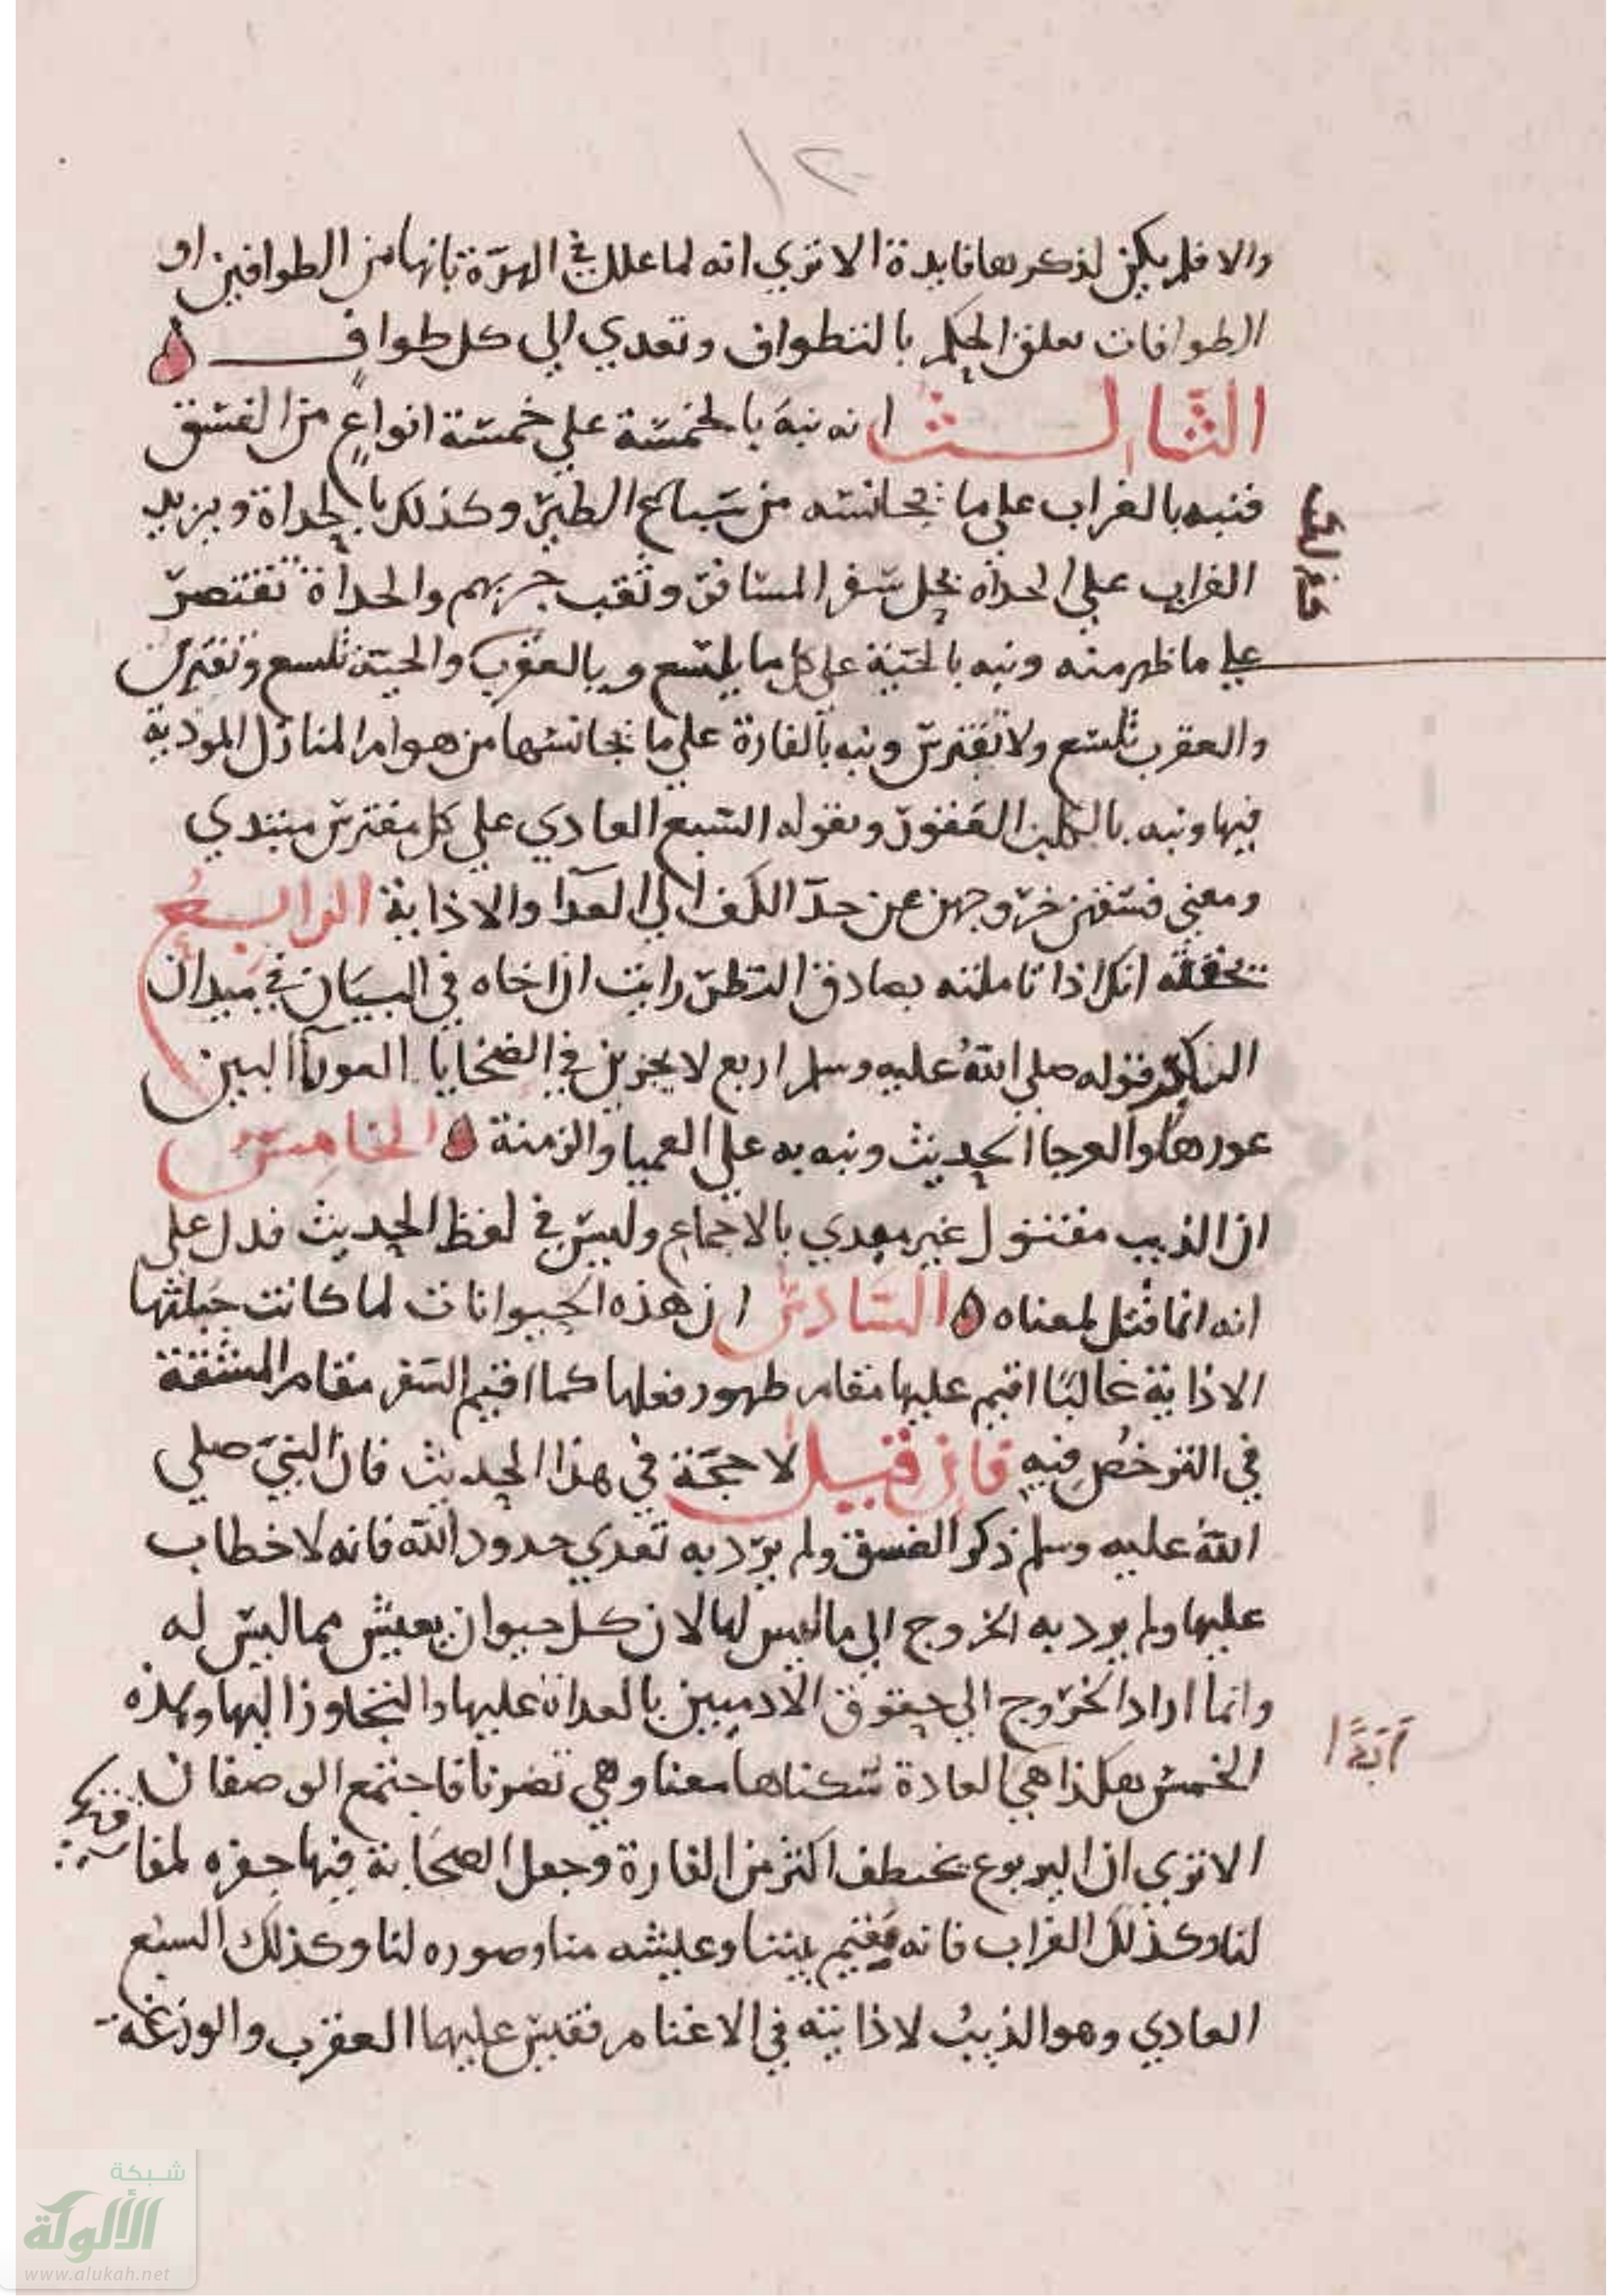 ١٢
والا فلم يكن لذكرها فايدة الا تري انه لما علل في الهرّة بانها من الطوافين او
الطوافات تعلق الحكم بالتطواف وتعدي الي كل طواف
الثالث انه نبه بالخمسة علي خمسة انواعٍ من الفسق
فنبه بالغراب علي ما يجانسه من سباع الطير وكذلك بالحداة ويزيد
الغراب علي الحداه بحل سفر المسافر وثقب جربهم والحداة تقتصر
علي ما ظهر منه ونبه بالحية علي كل ما يلسع وبالعقرب والحية تلسع وتفترس
والعقرب تلسع ولا تفترس ونبه بالفارة علي ما يجانسها من هوام المنازل الموذية
فيها ونبه بالكلب العقور وبقوله السبع العادي علي كل مفترس مبتدي
ومعني فسقهن خروجهن عن حدّ الكف الي العدا والاذاية الرابع
انك اذا تاملته بصادق النظر رايت ان اخاه في البيان في ميدان
قوله صلي الله عليه وسلم اربع لا يجزين في الضحايا العورآ البين
عورها والعرجا الحديث ونبه به علي العميا والزمنة الخامس
ان الذيب مقتول غير مودي بالاجماع وليس في لفظ الحديث فدل علي
انه انما قتل لمعناه السادس ان هذه الحيوانات لما كانت جبلتها
الاذاية غالبًا اقيم عليها مقام ظهور فعلها كما اقيم السفر مقام المشقة
في الترخص فيه فان قيل لا حجّة في هذا الحديث فان النبيّ صلي
الله عليه وسلم ذكر الفسق ولم يرد به تعدي حدود الله فانه لا خطاب
عليها ولم يرد به الخروج الي ما ليس لها لان كل حيوان يعيش مما ليس له
وانما اراد الخروج الي حقوق الادميين بالعداة عليها والتجاوز اليها وهذه
الخمس هكذا هي العادة سكناها معنا وهي تضرنا فاجتمع الوصفان
الا تري ان اليربوع يخطف اكثر من الفارة وجعل الصحابة فيها جفره
لنا وكذلك الغراب فانه مقيم بيننا وعيشه منا وصوره لنا وكذلك السبع
العادي وهو الذيبُ لاذايته في الاغنام فقيس عليها العقرب والوزغة
شبكة
الألوكة
www.alukah.net